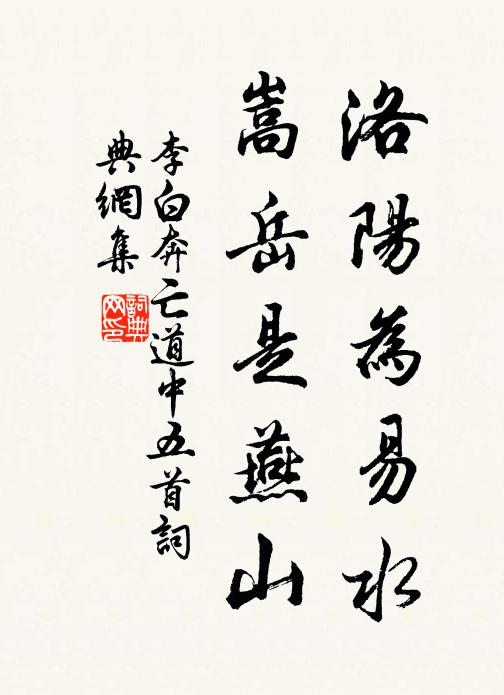 洛陽為易水
嵩岳是燕山
李白奔亡道中五首詞
典網集
詞典
网印